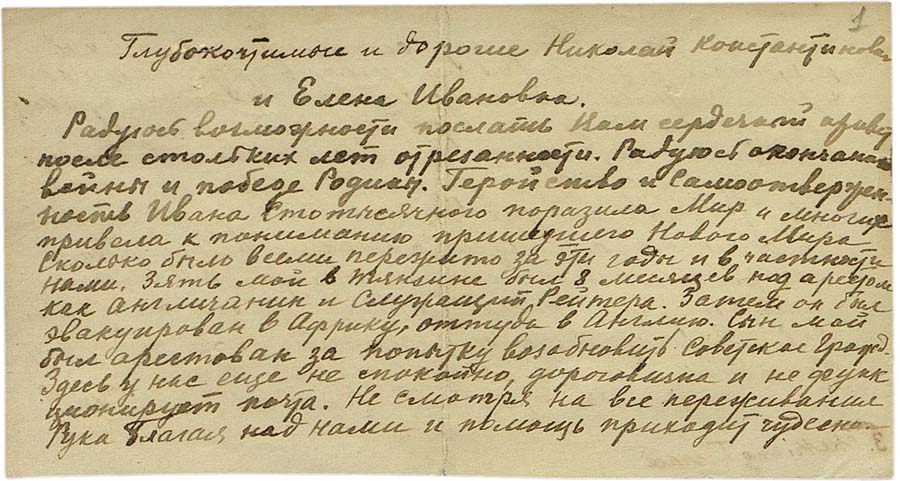 1
Глубокочтимые и дорогие Николай Константинович
и Елена Ивановна.
Радуюсь возможности послать Вам сердечный привет
после стольких лет отрезанности. Радуюсь окончанию
войны и победе Родины. Геройство и самоотвержен-
ность Ивана Стотысячного поразила Мир и многих
привела к пониманию пришедшего Нового Мира
Сколько было всеми пережито за эти годы и в частности
нами. Зять мой в Тянзине был 8 месяцев под арестом
как англичанин и служащий Рейтера. Затем он был
эвакуирован в Африку, оттуда в Англию. Сын мой
был арестован за попытку возобновить Советское Гражд.
Здесь у нас еще не спокойно, дороговизна и не функ
ционирует почта. Не смотря на все переживания
Рука Благая над нами и помощь приходит чудесно